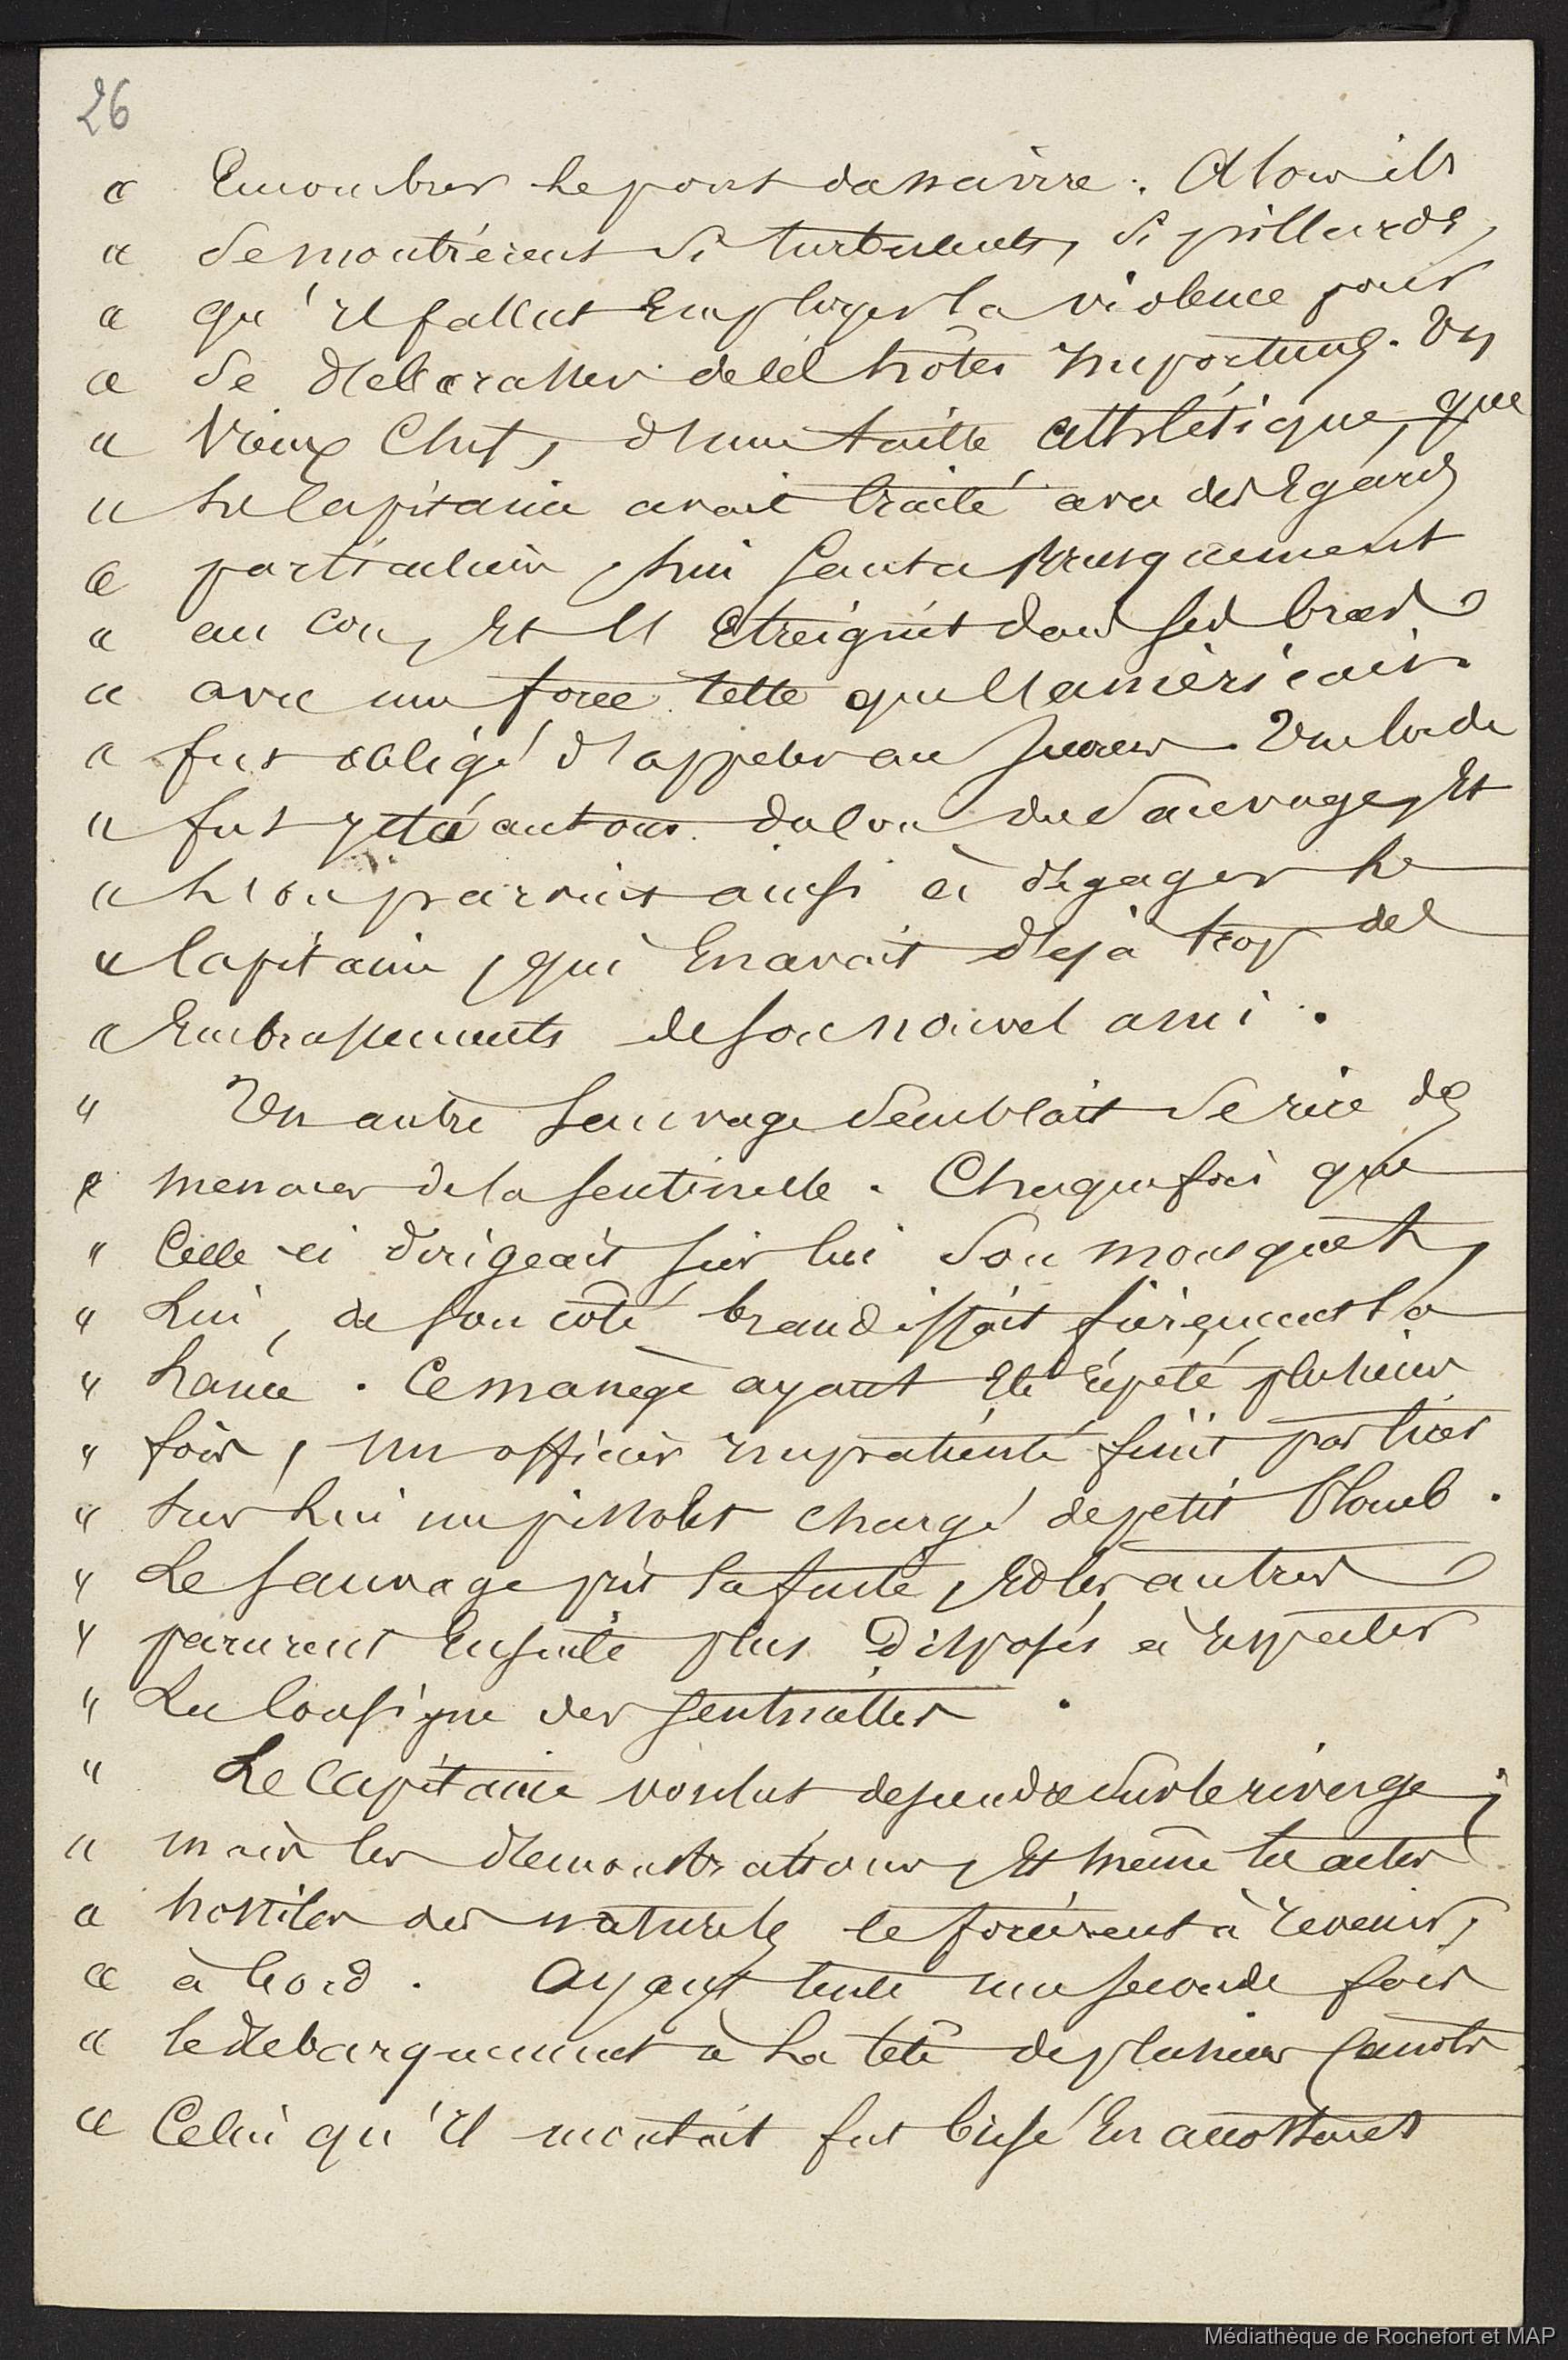 26
« Encombrer le pont du navire. Alors ils
« se montrèrent si turbulents, si pillards,
« qu'il fallut employer la violence pour
« se débarasser de ces hôtes importuns. Un
« Vieux Chef, d'une taille athlétique, que
« le Capitaine avait traité avec des Egards
« particuliers, lui sauta brusquement
« au cou, et l'étreignit dans ses bras
« avec une force telle que l'américain
« fut obligé d'appeler au secours. Une corde
« fut jetée autour du cou du Sauvage, Et
« l'on parvint ainsi à dégager le
« Capitaine, qui En avait déjà trop des
« Embrassements de son nouvel ami.
« Un autre sauvage semblait se rire des
« menaces de la sentinelle. Chaque fois que
« Celle-ci dirigeait sur lui son mousquet,
« lui, de son côté brandissait fièrement sa
« lance. Ce manège ayant été répété plusieurs
« fois, un officier impatienté finit par tirer
« sur lui un pistolet chargé de petit Plomb.
« Le sauvage prit la fuite, Et les autres
« parurent Ensuite plus Disposés à respecter
« La Consigne des sentinelles.
« Le Capitaine voulut descendre sur le rivage ;
« mais les démonstrations, Et même les actes
« hostiles des naturels le forcèrent à revenir,
« à bord. Ayant tenté une seconde fois
« le débarquement à la tête de plusieurs Canots,
« Celui qu'il montait fut brisé En accostant
Médiathèque de Rochefort et MAP